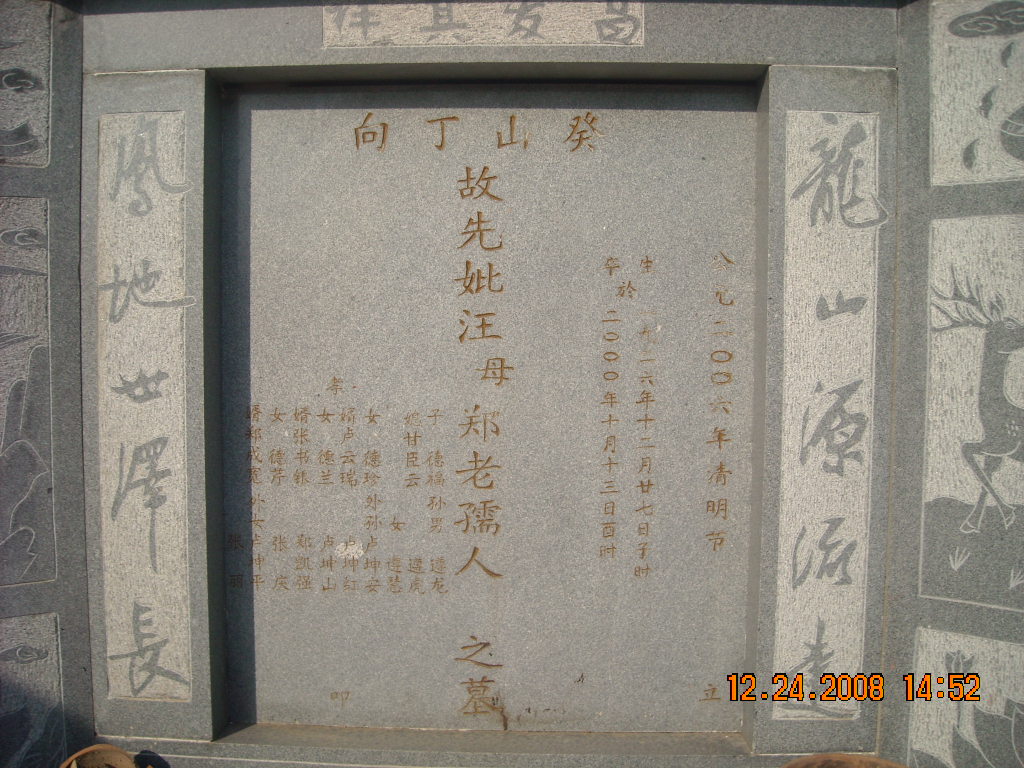 昌发其祥
龍山源流遠
癸山丁向
公元二00六年清明节
立
生
一九二六年十二月廿七日子时
於
卒
二000年十月十三日酉时
故先妣汪母郑老孺人之墓
子 德福 孙男 遵龙
媳甘臣云 遵虎
女 遵慧
女 德珍 外孙 卢坤安
婿卢云瑞 卢坤红
女 德兰 卢坤山
婿张书银 郑凯强
女 德芹 张
婿郑成宽 外女 卢坤平
张
孝
叩
鳳地世澤長
12.24.2008 14:52